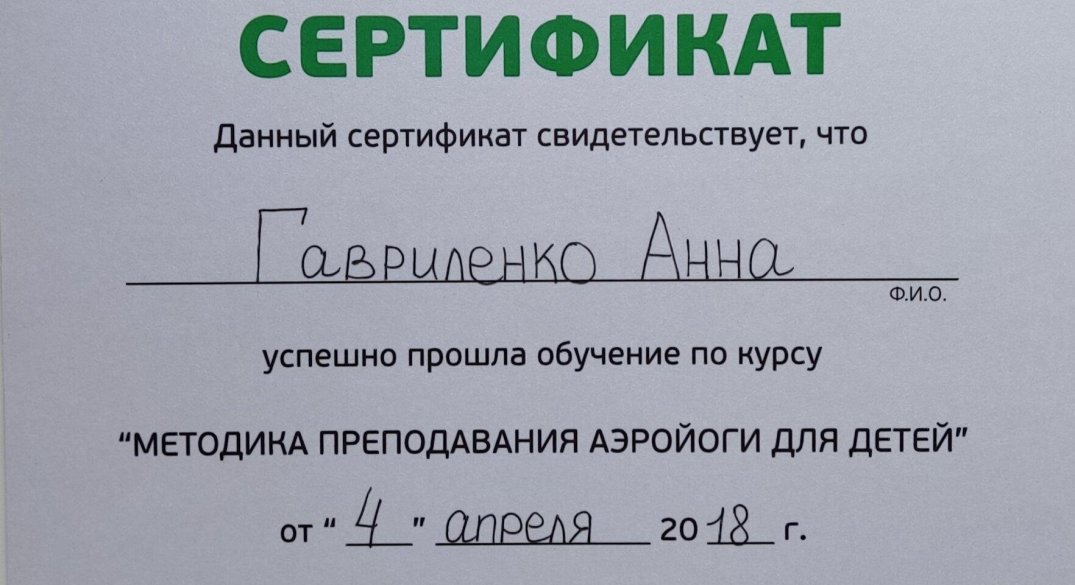 СЕРТИФИКАТ
Данный сертификат свидетельствует, что
Гавриленко Анна
Ф.И.О.
успешно прошла обучение по курсу
“МЕТОДИКА ПРЕПОДАВАНИЯ АЭРОЙОГИ ДЛЯ ДЕТЕЙ”
от “ 4 ” апреля 2018 г.